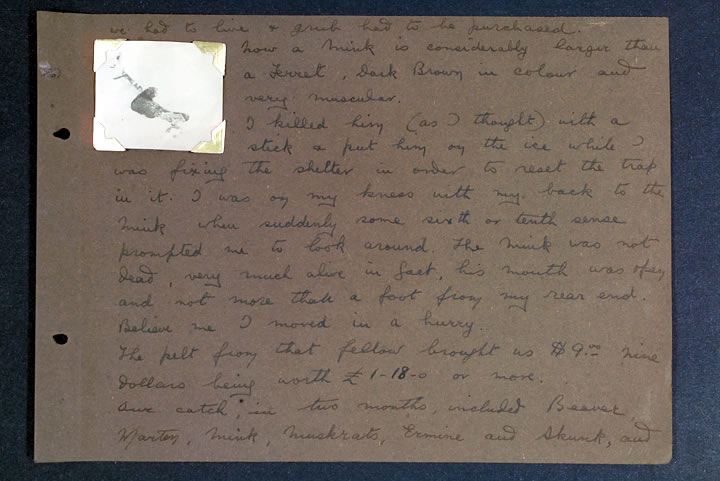 we had to live & grub had to be purchased.
Now a Mink is considerably larger than
a Ferret, Dark Brown in colour and
very muscular.
I killed him (as I thought) with a
stick & put him on the ice while I
was fixing the shelter in order to reset the trap
in it. I was on my knees with my back to the
Mink when suddenly some sixth or tenth sense
prompted me to look around. The Mink was not
Dead, very much alive in fact, his mouth was open
and not more than a foot from my rear end.
Believe me I moved in a hurry.
The pelt from that fellow brought us $9.00 nine
Dollars being worth £1-18-0 or more.
Our catch, in two months, included Beaver,
Marten, Mink, Muskrats, Ermine and Skunk, and